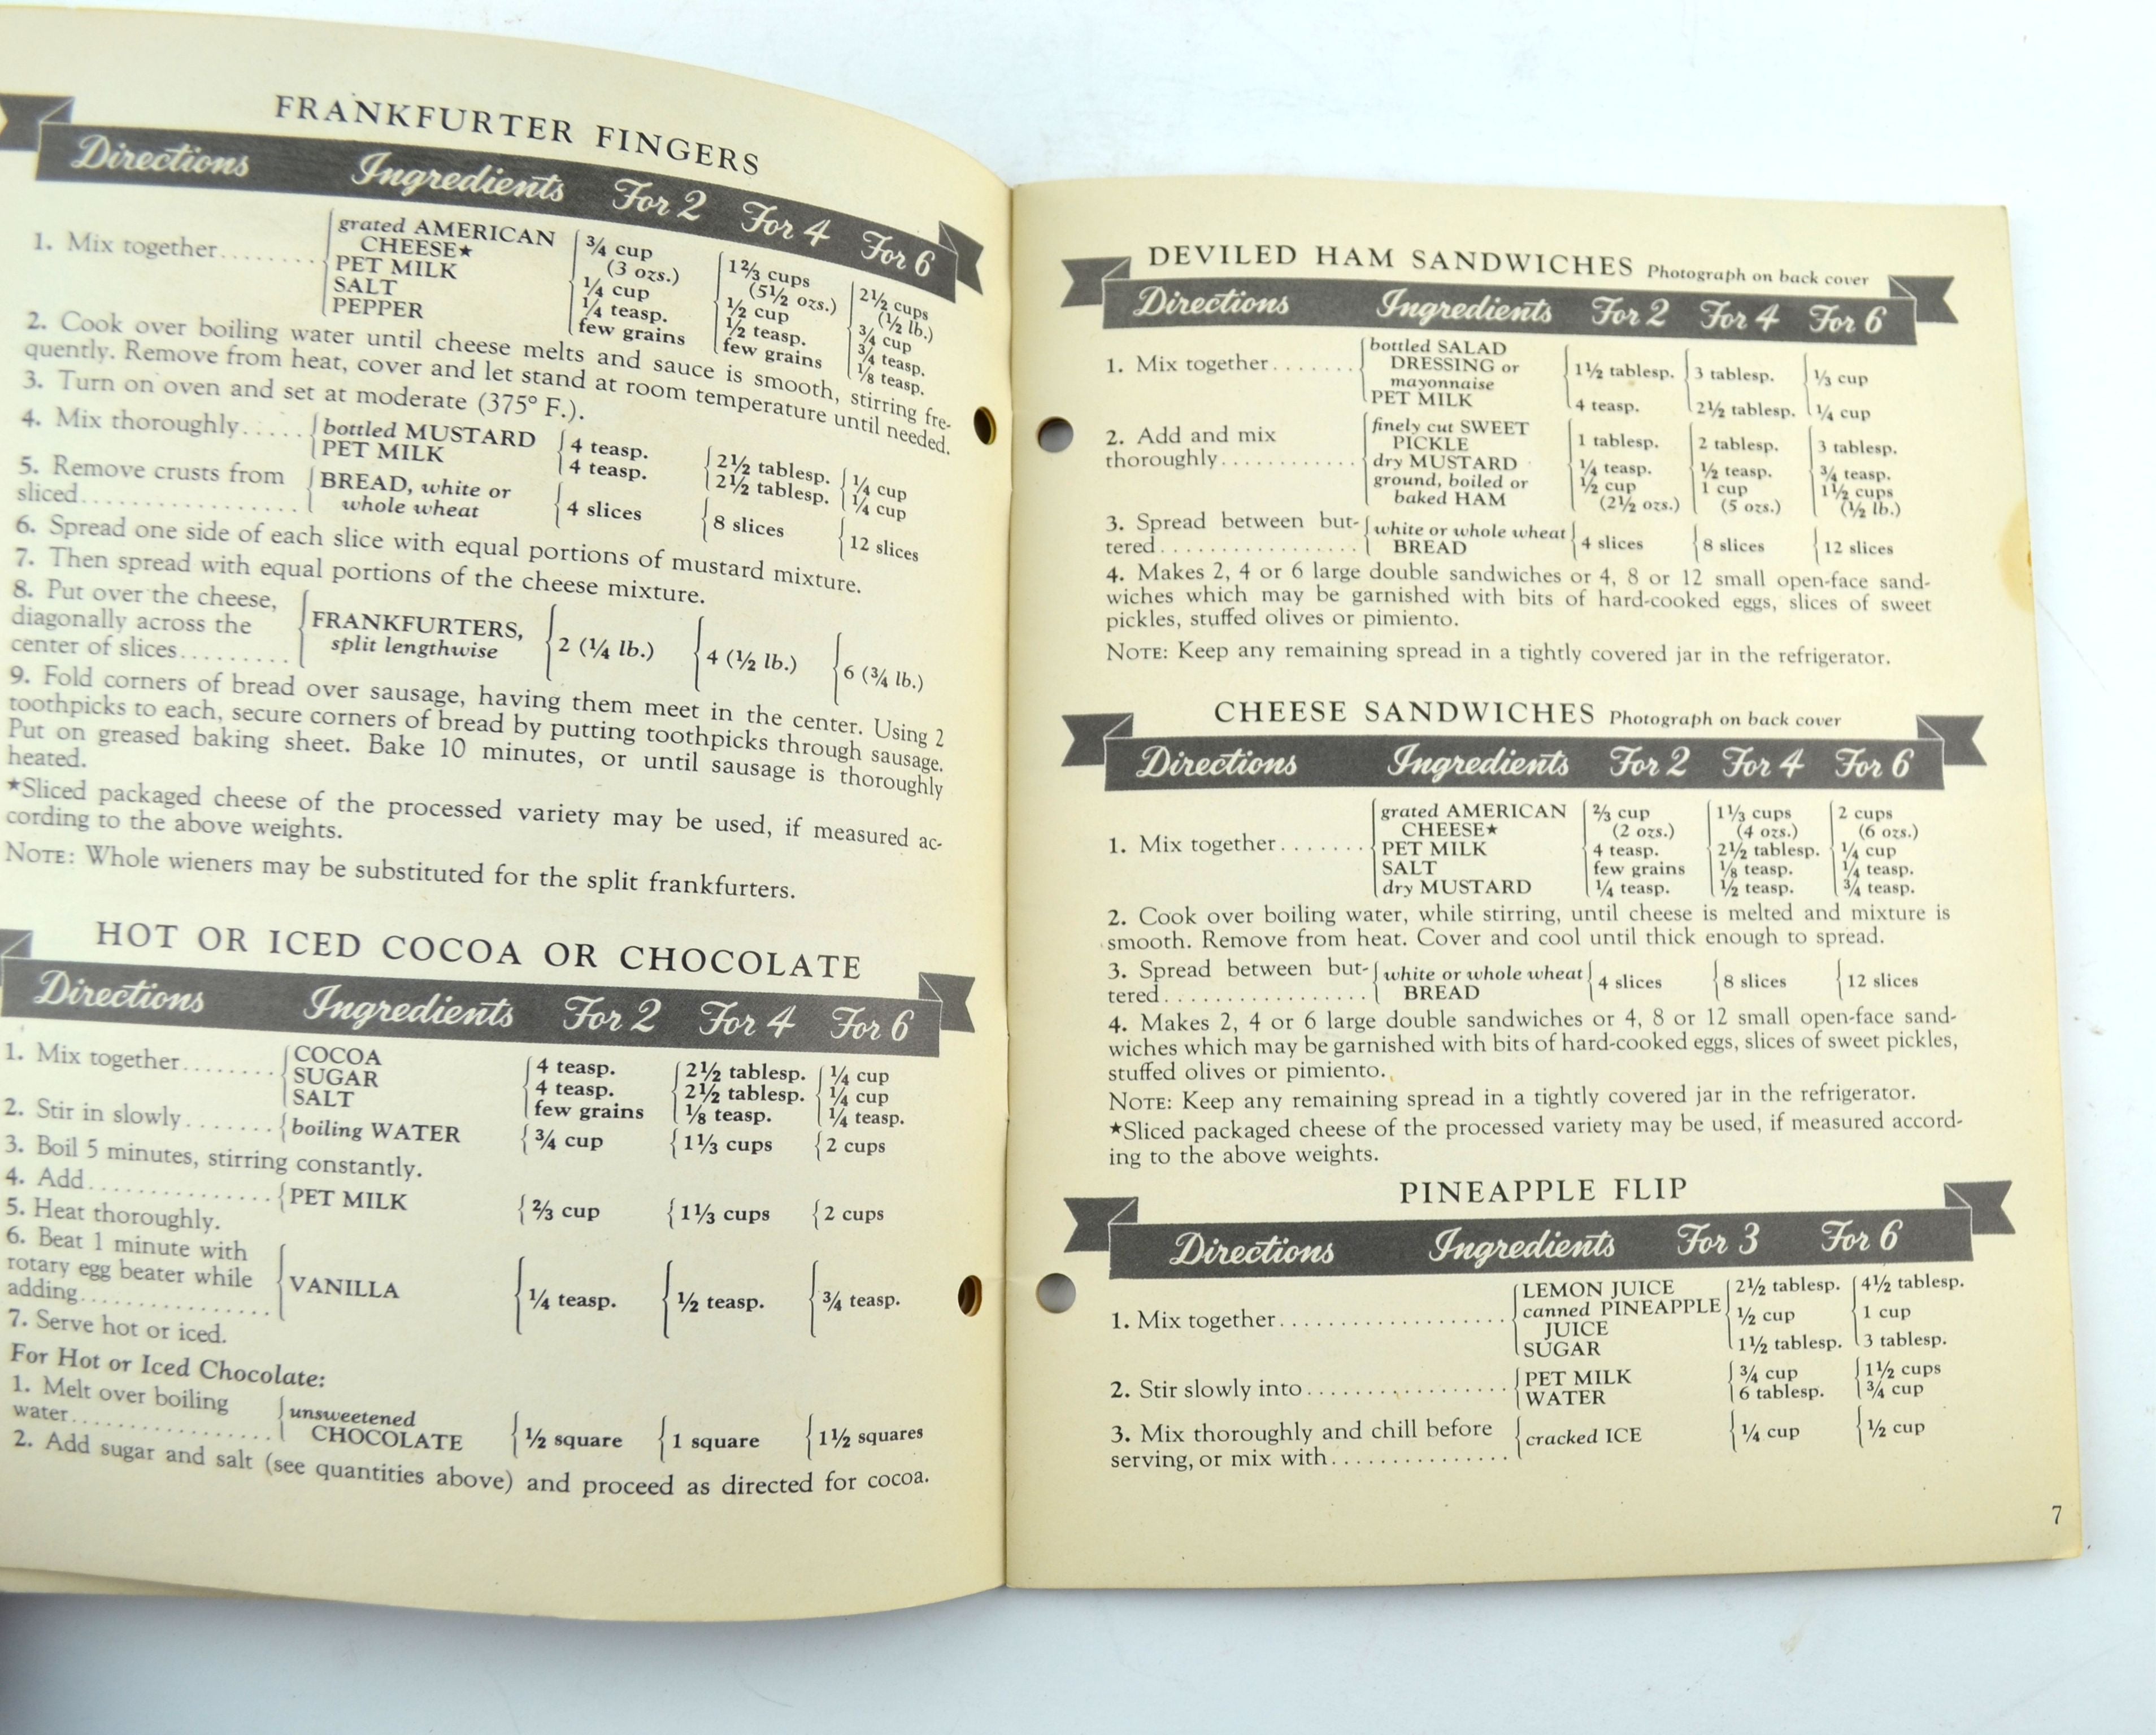 FRANKFURTER FINGERS
Directions Ingredients For 2 For 4 For 6
1. Mix together........ grated AMERICAN CHEESE★ ¾ cup (3 ozs.) 1⅔ cups (5½ ozs.) 2½ cups (½ lb.)
PET MILK ¼ cup ½ cup ¾ cup
SALT ¼ teasp. ½ teasp. ¾ teasp.
PEPPER few grains few grains ⅛ teasp.
2. Cook over boiling water until cheese melts and sauce is smooth, stirring fre-
quently. Remove from heat, cover and let stand at room temperature until needed.
3. Turn on oven and set at moderate (375° F.).
4. Mix thoroughly..... bottled MUSTARD 4 teasp. 2½ tablesp. ¼ cup
PET MILK 4 teasp. 2½ tablesp. ¼ cup
5. Remove crusts from BREAD, white or
sliced................ whole wheat 4 slices 8 slices 12 slices
6. Spread one side of each slice with equal portions of mustard mixture.
7. Then spread with equal portions of the cheese mixture.
8. Put over the cheese,
diagonally across the FRANKFURTERS,
center of slices......... split lengthwise 2 (¼ lb.) 4 (½ lb.) 6 (¾ lb.)
9. Fold corners of bread over sausage, having them meet in the center. Using 2
toothpicks to each, secure corners of bread by putting toothpicks through sausage.
Put on greased baking sheet. Bake 10 minutes, or until sausage is thoroughly
heated.
★Sliced packaged cheese of the processed variety may be used, if measured ac-
cording to the above weights.
NOTE: Whole wieners may be substituted for the split frankfurters.
HOT OR ICED COCOA OR CHOCOLATE
Directions Ingredients For 2 For 4 For 6
1. Mix together........ COCOA 4 teasp. 2½ tablesp. ¼ cup
SUGAR 4 teasp. 2½ tablesp. ¼ cup
SALT few grains ⅛ teasp. ¼ teasp.
2. Stir in slowly....... boiling WATER ¾ cup 1⅓ cups 2 cups
3. Boil 5 minutes, stirring constantly.
4. Add............... PET MILK ⅔ cup 1⅓ cups 2 cups
5. Heat thoroughly.
6. Beat 1 minute with
rotary egg beater while VANILLA ¼ teasp. ½ teasp. ¾ teasp.
adding................
7. Serve hot or iced.
For Hot or Iced Chocolate:
1. Melt over boiling unsweetened
water................ CHOCOLATE ½ square 1 square 1½ squares
2. Add sugar and salt (see quantities above) and proceed as directed for cocoa.
DEVILED HAM SANDWICHES Photograph on back cover
Directions Ingredients For 2 For 4 For 6
1. Mix together....... bottled SALAD DRESSING or mayonnaise 1½ tablesp. 3 tablesp. ⅓ cup
PET MILK 4 teasp. 2½ tablesp. ¼ cup
2. Add and mix finely cut SWEET PICKLE 1 tablesp. 2 tablesp. 3 tablesp.
thoroughly............ dry MUSTARD ¼ teasp. ½ teasp. ¾ teasp.
ground, boiled or ½ cup 1 cup 1½ cups
baked HAM (2½ ozs.) (5 ozs.) (½ lb.)
3. Spread between but- white or whole wheat
tered................ BREAD 4 slices 8 slices 12 slices
4. Makes 2, 4 or 6 large double sandwiches or 4, 8 or 12 small open-face sand-
wiches which may be garnished with bits of hard-cooked eggs, slices of sweet
pickles, stuffed olives or pimiento.
NOTE: Keep any remaining spread in a tightly covered jar in the refrigerator.
CHEESE SANDWICHES Photograph on back cover
Directions Ingredients For 2 For 4 For 6
1. Mix together....... grated AMERICAN ⅔ cup 1⅓ cups 2 cups
CHEESE★ (2 ozs.) (4 ozs.) (6 ozs.)
PET MILK 4 teasp. 2½ tablesp. ¼ cup
SALT few grains ⅛ teasp. ¼ teasp.
dry MUSTARD ¼ teasp. ½ teasp. ¾ teasp.
2. Cook over boiling water, while stirring, until cheese is melted and mixture is
smooth. Remove from heat. Cover and cool until thick enough to spread.
3. Spread between but- white or whole wheat
tered................. BREAD 4 slices 8 slices 12 slices
4. Makes 2, 4 or 6 large double sandwiches or 4, 8 or 12 small open-face sand-
wiches which may be garnished with bits of hard-cooked eggs, slices of sweet pickles,
stuffed olives or pimiento.
NOTE: Keep any remaining spread in a tightly covered jar in the refrigerator.
★Sliced packaged cheese of the processed variety may be used, if measured accord-
ing to the above weights.
PINEAPPLE FLIP
Directions Ingredients For 3 For 6
1. Mix together................... LEMON JUICE 2½ tablesp. 4½ tablesp.
canned PINEAPPLE JUICE ½ cup 1 cup
SUGAR 1½ tablesp. 3 tablesp.
2. Stir slowly into................. PET MILK ¾ cup 1½ cups
WATER 6 tablesp. ¾ cup
3. Mix thoroughly and chill before
serving, or mix with............... cracked ICE ¼ cup ½ cup
7